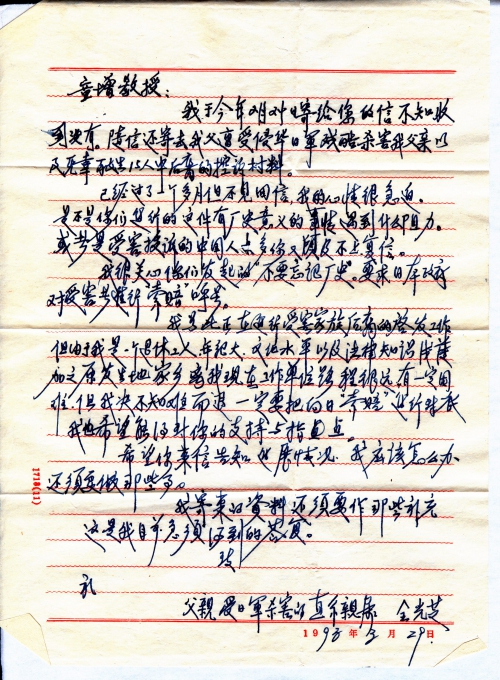 童增教授：
我于今年2月对日寄给你的信不知收
到没有。随信还寄去我父辈受侵华日军残酷杀害我父亲以
及无辜 15人中后裔的控诉材料。
已经过了一个多月但不见回信，我的心情很急迫。
是不是你们进行的这件有历史意义的事情遇到什么阻力。
或者是受害投诉的中国人太多你又顾及不上复信。
我很关心你们发起的"不要忘记历史"。要求日本政府
对受害者进行"索赔"的
我 正在进行受害家族后裔的 工作
但由于我是一个退休工人，年纪大、文化水平以及法律知识
加之原发生地家乡离我现在工作单位路程很远有一定困
难，但我决不知难而退 一定要把向日"索赔"进行到底
我也希望能得到你的支持与指点。
希望你来信告知进展情况 我应该怎么办
还须要做那些事。
我寄来的资料还须要作那些补充
这是我目前急须得到的答复。
致
礼
父亲受日军杀害的直系亲属 全光芝
1993年3月29日.
1710(11)